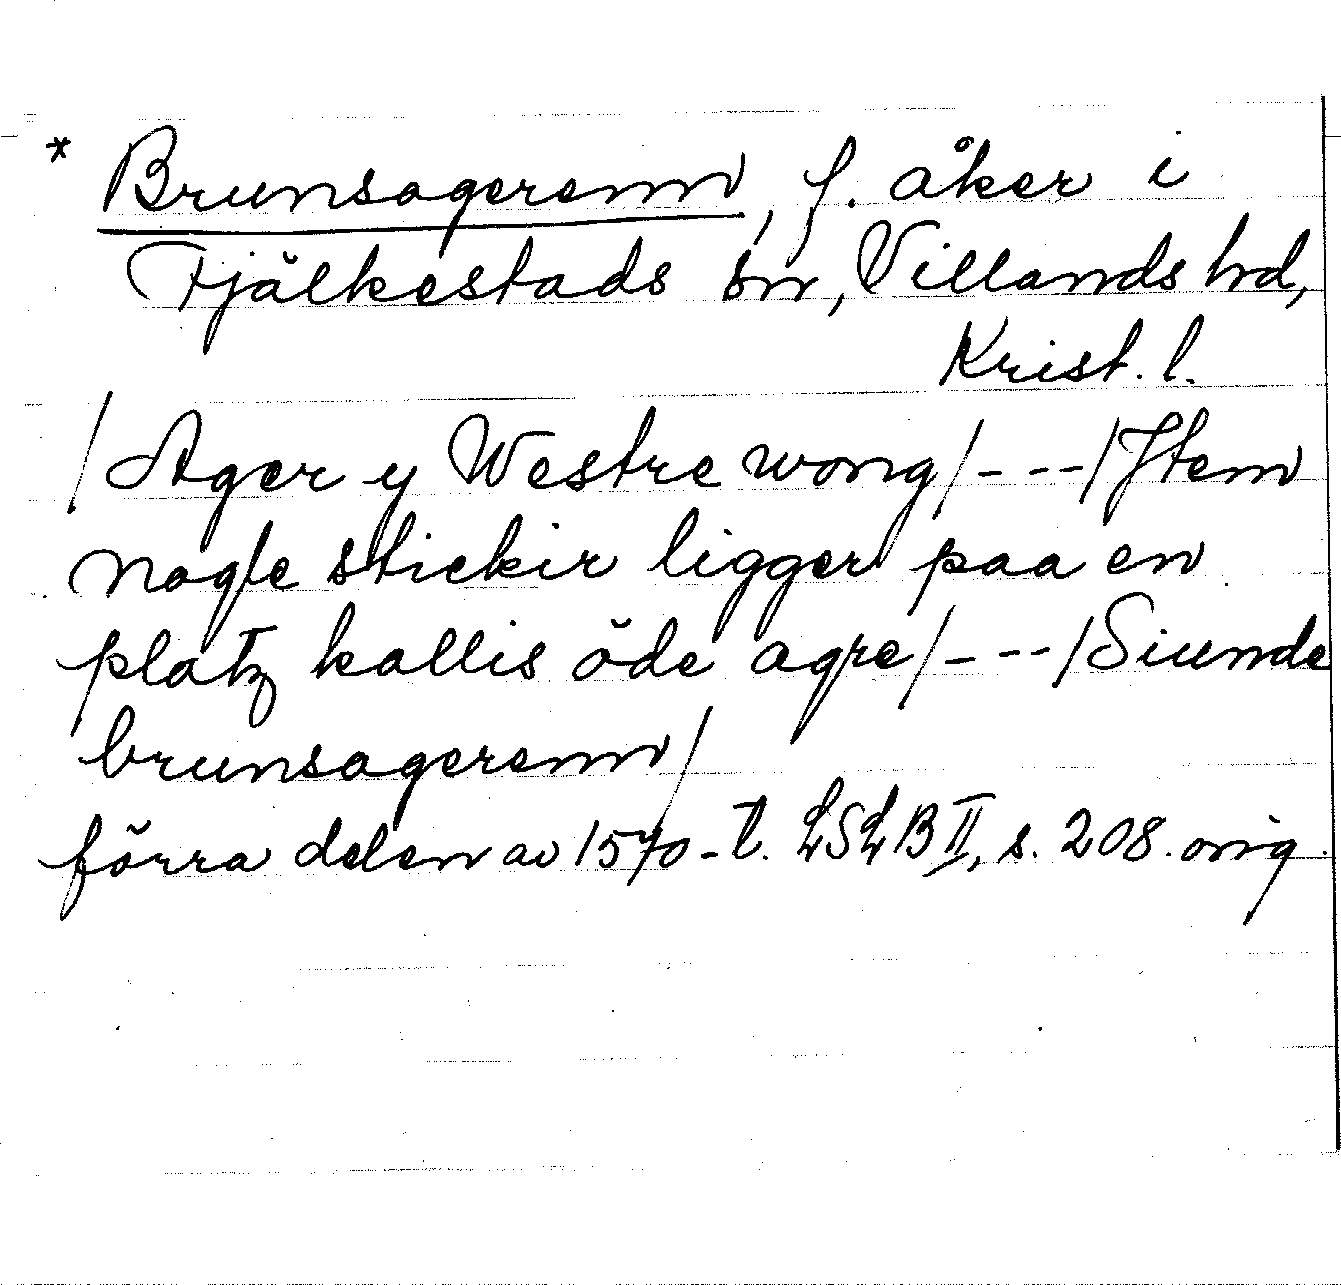 * Brunsagerenn, f. åker i
Fjälkestads sn, Villands hd,
Krist. l.
/Ager y Westre wong/---/Jtem
nogle stickir ligger paa en
platz kallis öde agre/---/Siunde
brunsagerenn/
förra delen av 1570-t. LSLB II, s. 208. orig.